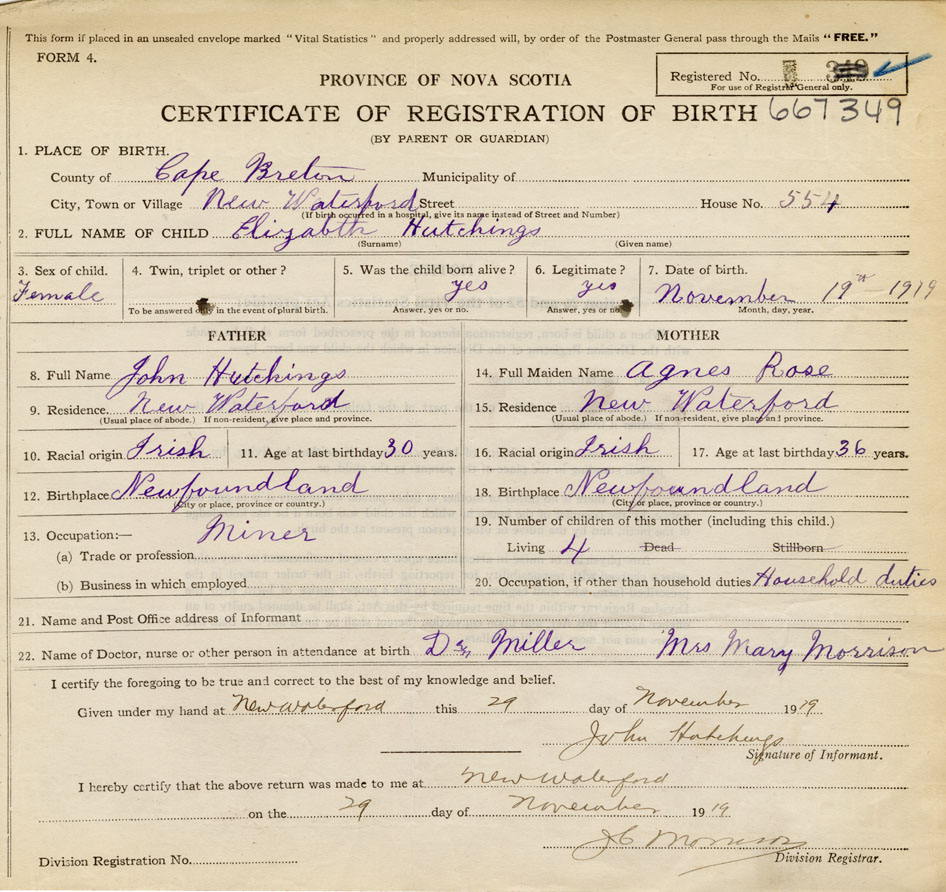 This form if placed in an unsealed envelope marked "Vital Statistics" and properly addressed will, by order of the Postmaster General pass through the Mails "FREE."
FORM 4.
Registered No. 349
For use of Registrar General only.
PROVINCE OF NOVA SCOTIA
CERTIFICATE OF REGISTRATION OF BIRTH 667349
(BY PARENT OR GUARDIAN)
1. PLACE OF BIRTH.
County of Cape Breton Municipality of
City, Town or Village New Waterford Street House No. 554
(If birth occurred in a hospital, give its name instead of Street and Number)
2. FULL NAME OF CHILD Elizabth Hutchings
(Surname) (Given name)
3. Sex of child. 4. Twin, triplet or other? 5. Was the child born alive? 6. Legitimate? 7. Date of birth.
Female yes yes November 19th 1919
To be answered only in the event of plural birth. Answer, yes or no. Answer, yes or no. Month, day, year.
FATHER MOTHER
8. Full Name John Hutchings 14. Full Maiden Name Agnes Rose
9. Residence. New Waterford 15. Residence New Waterford
(Usual place of abode.) If non-resident, give place and province. (Usual place of abode.) If non-resident, give place and province.
10. Racial origin Irish 11. Age at last birthday 30 years. 16. Racial origin Irish 17. Age at last birthday 36 years.
12. Birthplace Newfoundland 18. Birthplace Newfoundland
(City or place, province or country.) (City or place, province or country.)
13. Occupation:— Miner 19. Number of children of this mother (including this child.)
(a) Trade or profession Living 4 Dead Stillborn
(b) Business in which employed 20. Occupation, if other than household duties Household duties
21. Name and Post Office address of Informant
22. Name of Doctor, nurse or other person in attendance at birth Miller Mrs Mary Morrison
I certify the foregoing to be true and correct to the best of my knowledge and belief.
Given under my hand at New Waterford this 29 day of November 1919
John Hutchings
Signature of Informant.
I hereby certify that the above return was made to me at New Waterford
on the 29 day of November 1919
J C Morrison
Division Registration No. Division Registrar.